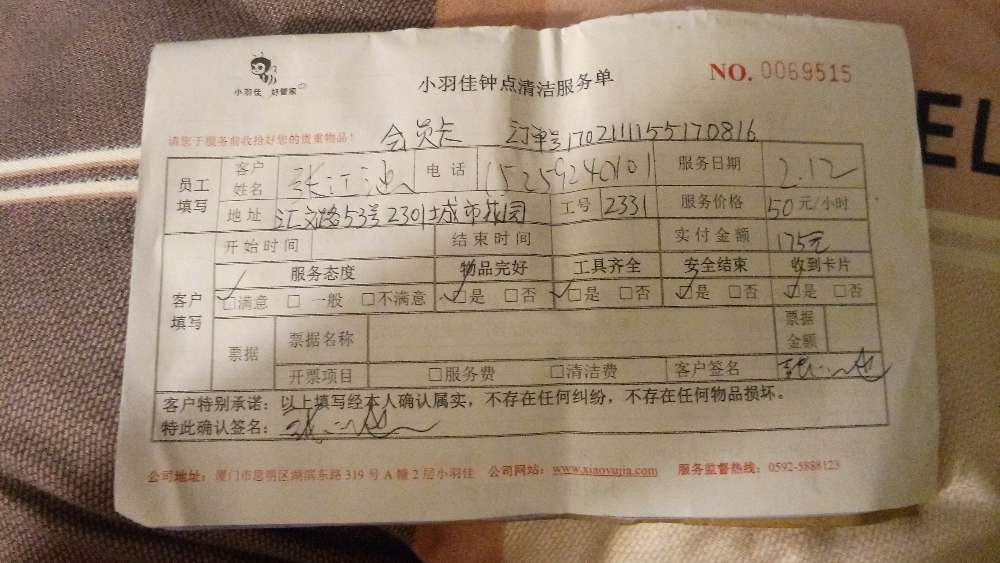 小羽佳 好管家
小羽佳钟点清洁服务单
NO. 0069515
请您于服务前收拾好您的贵重物品!
会员卡 订单号170211155170816
员工填写 客户姓名 张江 电话 15259240101 服务日期 2.12
地址 汇文路53号2301城市花园 工号 2331 服务价格 50元/小时
客户填写 开始时间 结束时间 实付金额 175元
服务态度 物品完好 工具齐全 安全结束 收到卡片
☑满意 □一般 □不满意 ☑是 □否 ☑是 □否 ☑是 □否 ☑是 □否
票据 票据名称 票据金额
开票项目 □服务费 □清洁费 客户签名
客户特别承诺：以上填写经本人确认属实，不存在任何纠纷，不存在任何物品损坏。
特此确认签名：
公司地址：厦门市思明区湖滨东路319号A幢2层小羽佳 公司网站：www.xiaoyujia.com 服务监督热线：0592-5888123